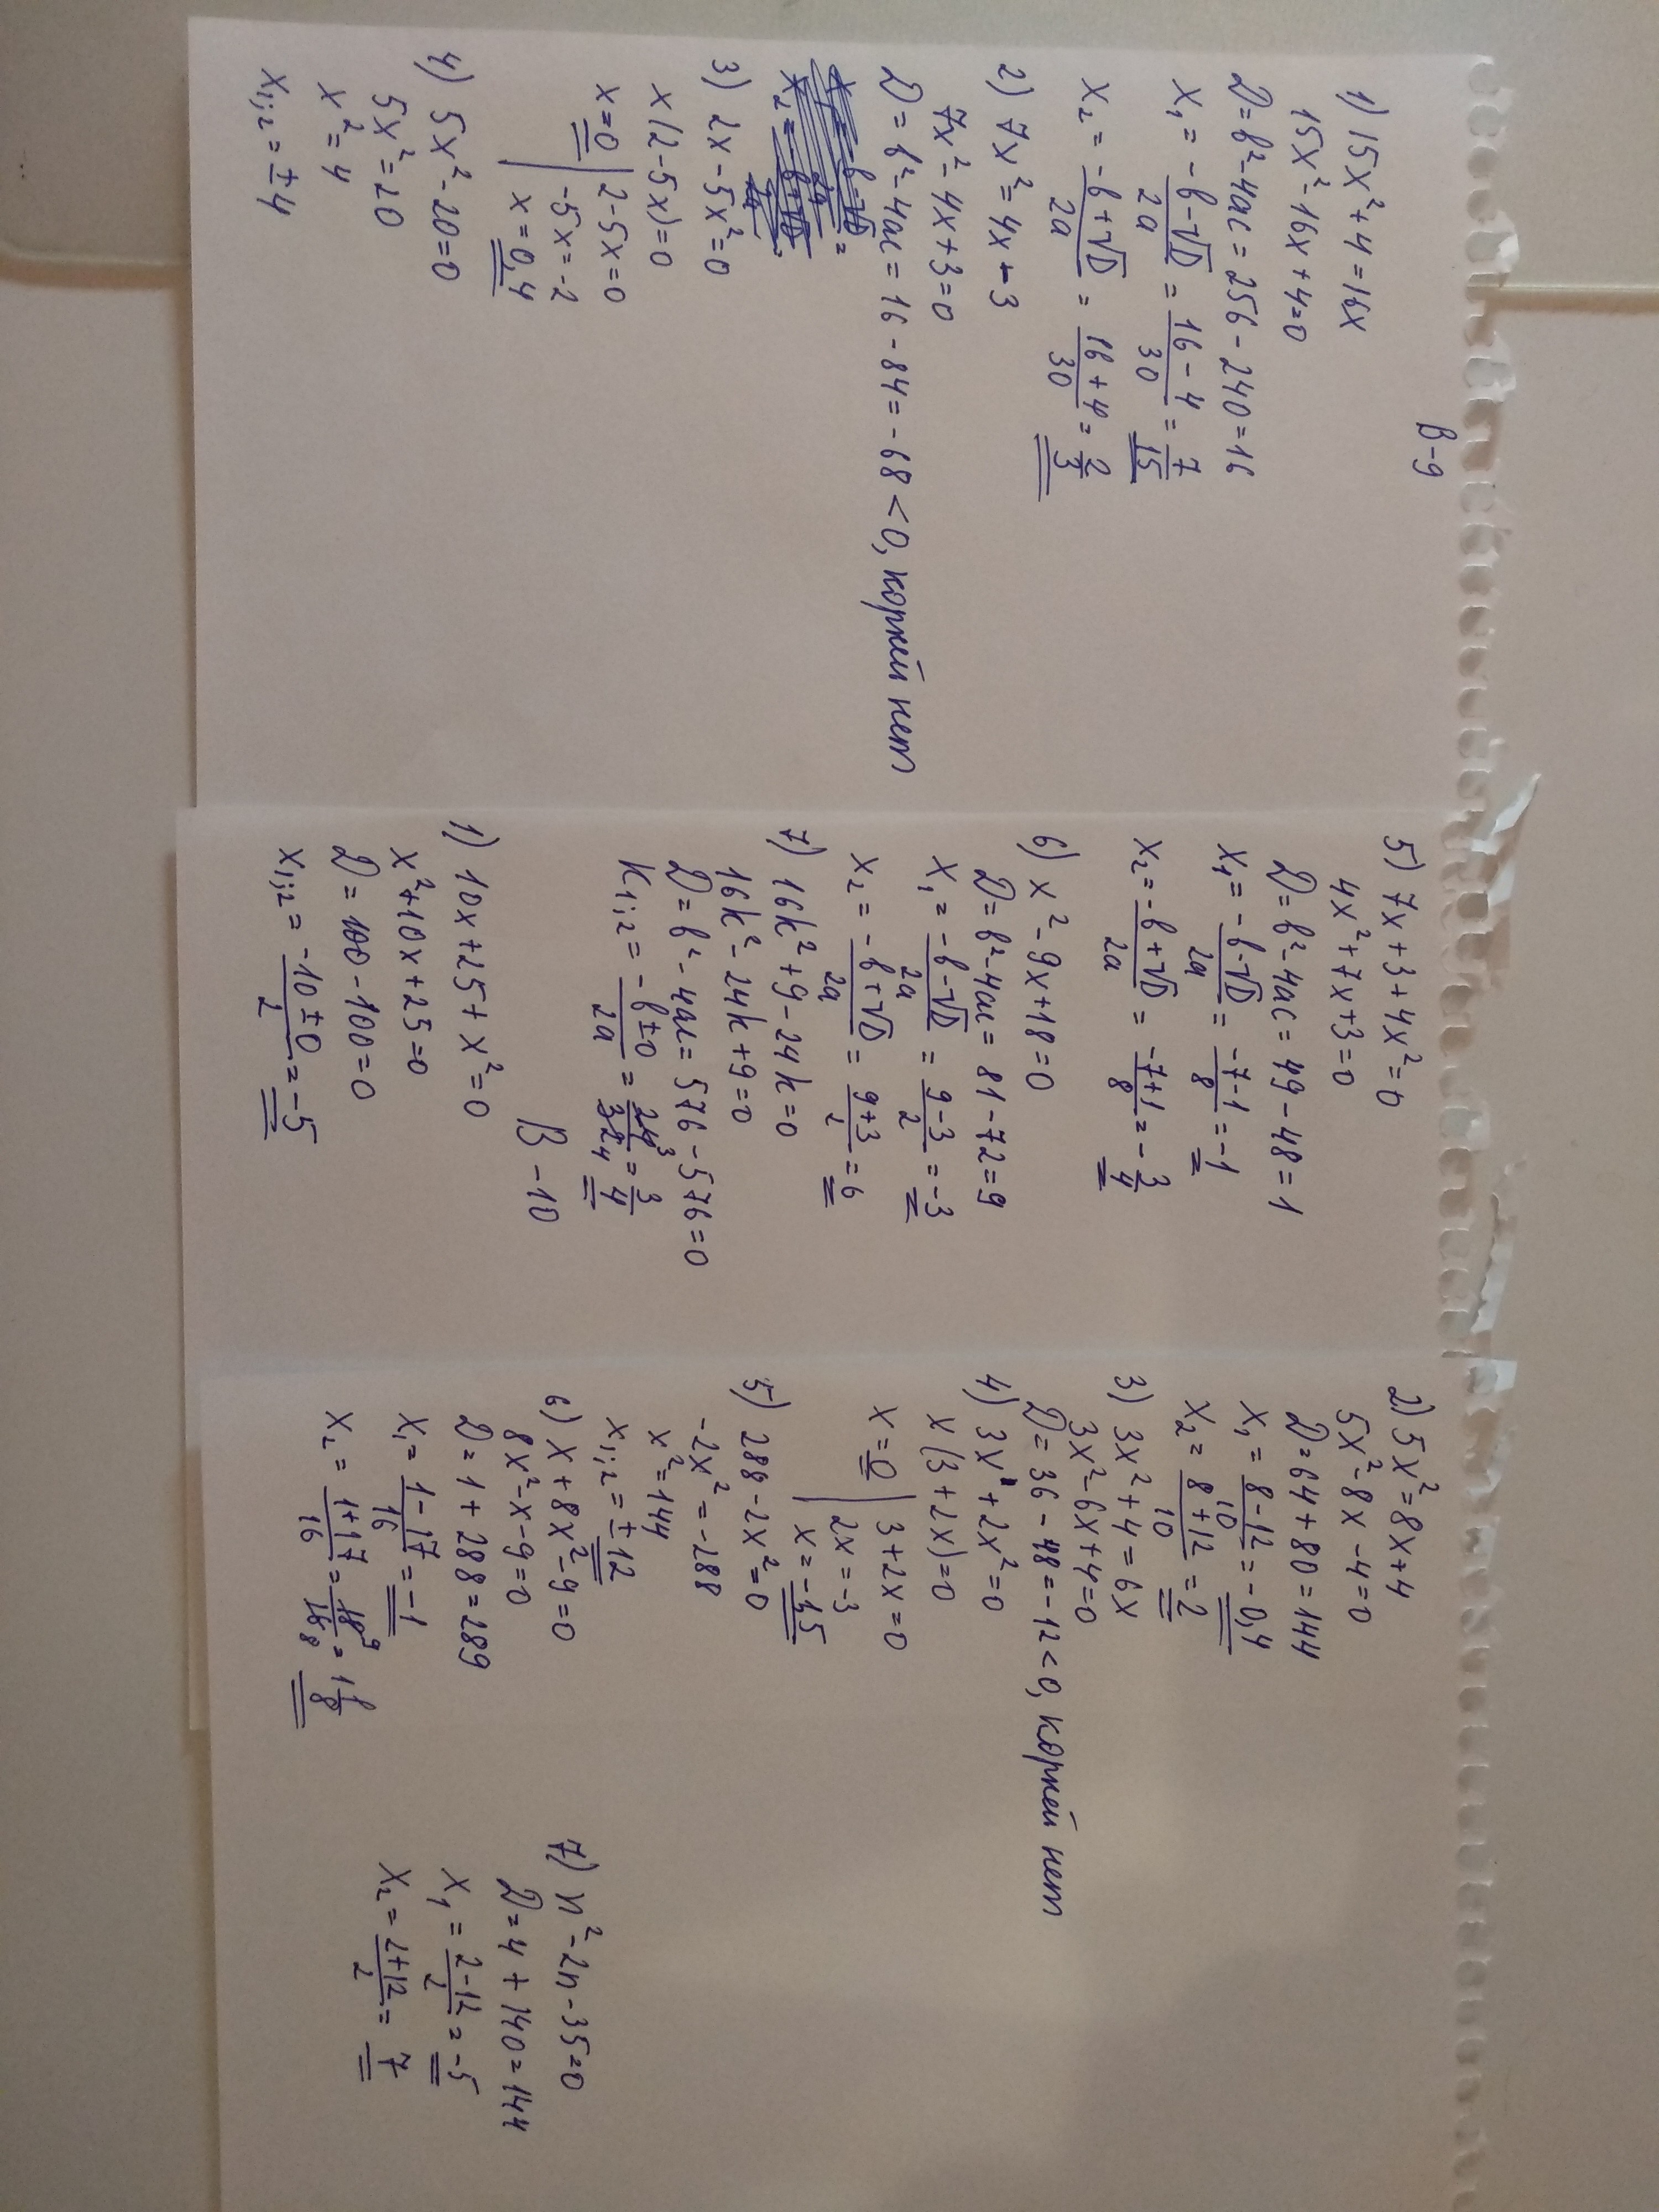 В-9
1) 15x²+4=16x
15x²-16x+4=0
D=b²-4ac=256-240=16
x₁=-b-√D/2a=16-4/30=7/15
x₂=-b+√D/2a=16+4/30=2/3
2) 7x²=4x-3
7x²-4x+3=0
D=b²-4ac=16-84=-68<0, корней нет
3) 2x-5x²=0
x(2-5x)=0
x=0 | 2-5x=0
-5x=-2
x=0,4
4) 5x²-20=0
5x²=20
x²=4
x₁;₂=±4
5) 7x+3+4x²=0
4x²+7x+3=0
D=b²-4ac=49-48=1
x₁=-b-√D/2a=-7-1/8=-1
x₂=-b+√D/2a=-7+1/8=-3/4
6) x²-9x+18=0
D=b²-4ac=81-72=9
x₁=-b-√D/2a=9-3/2=-3
x₂=-b+√D/2a=9+3/2=6
7) 16k²+9-24k=0
16k²-24k+9=0
D=b²-4ac=576-576=0
k₁;₂=-b±0/2a=24³/32₄=3/4
В-10
1) 10x+25+x²=0
x²+10x+25=0
D=100-100=0
x₁;₂=-10±0/2=-5
2) 5x²=8x+4
5x²-8x-4=0
D=64+80=144
x₁=8-12/10=-0,4
x₂=8+12/10=2
3) 3x²+4=6x
3x²-6x+4=0
D=36-48=-12<0, корней нет
4) 3x+2x²=0
x(3+2x)=0
x=0 | 3+2x=0
2x=-3
x=-1,5
5) 288-2x²=0
-2x²=-288
x²=144
x₁;₂=±12
6) x+8x²-9=0
8x²-x-9=0
D=1+288=289
x₁=1-17/16=-1
x₂=1+17/16=18⁹/16₈=1 1/8
7) n²-2n-35=0
D=4+140=144
x₁=2-12/2=-5
x₂=2+12/2=7